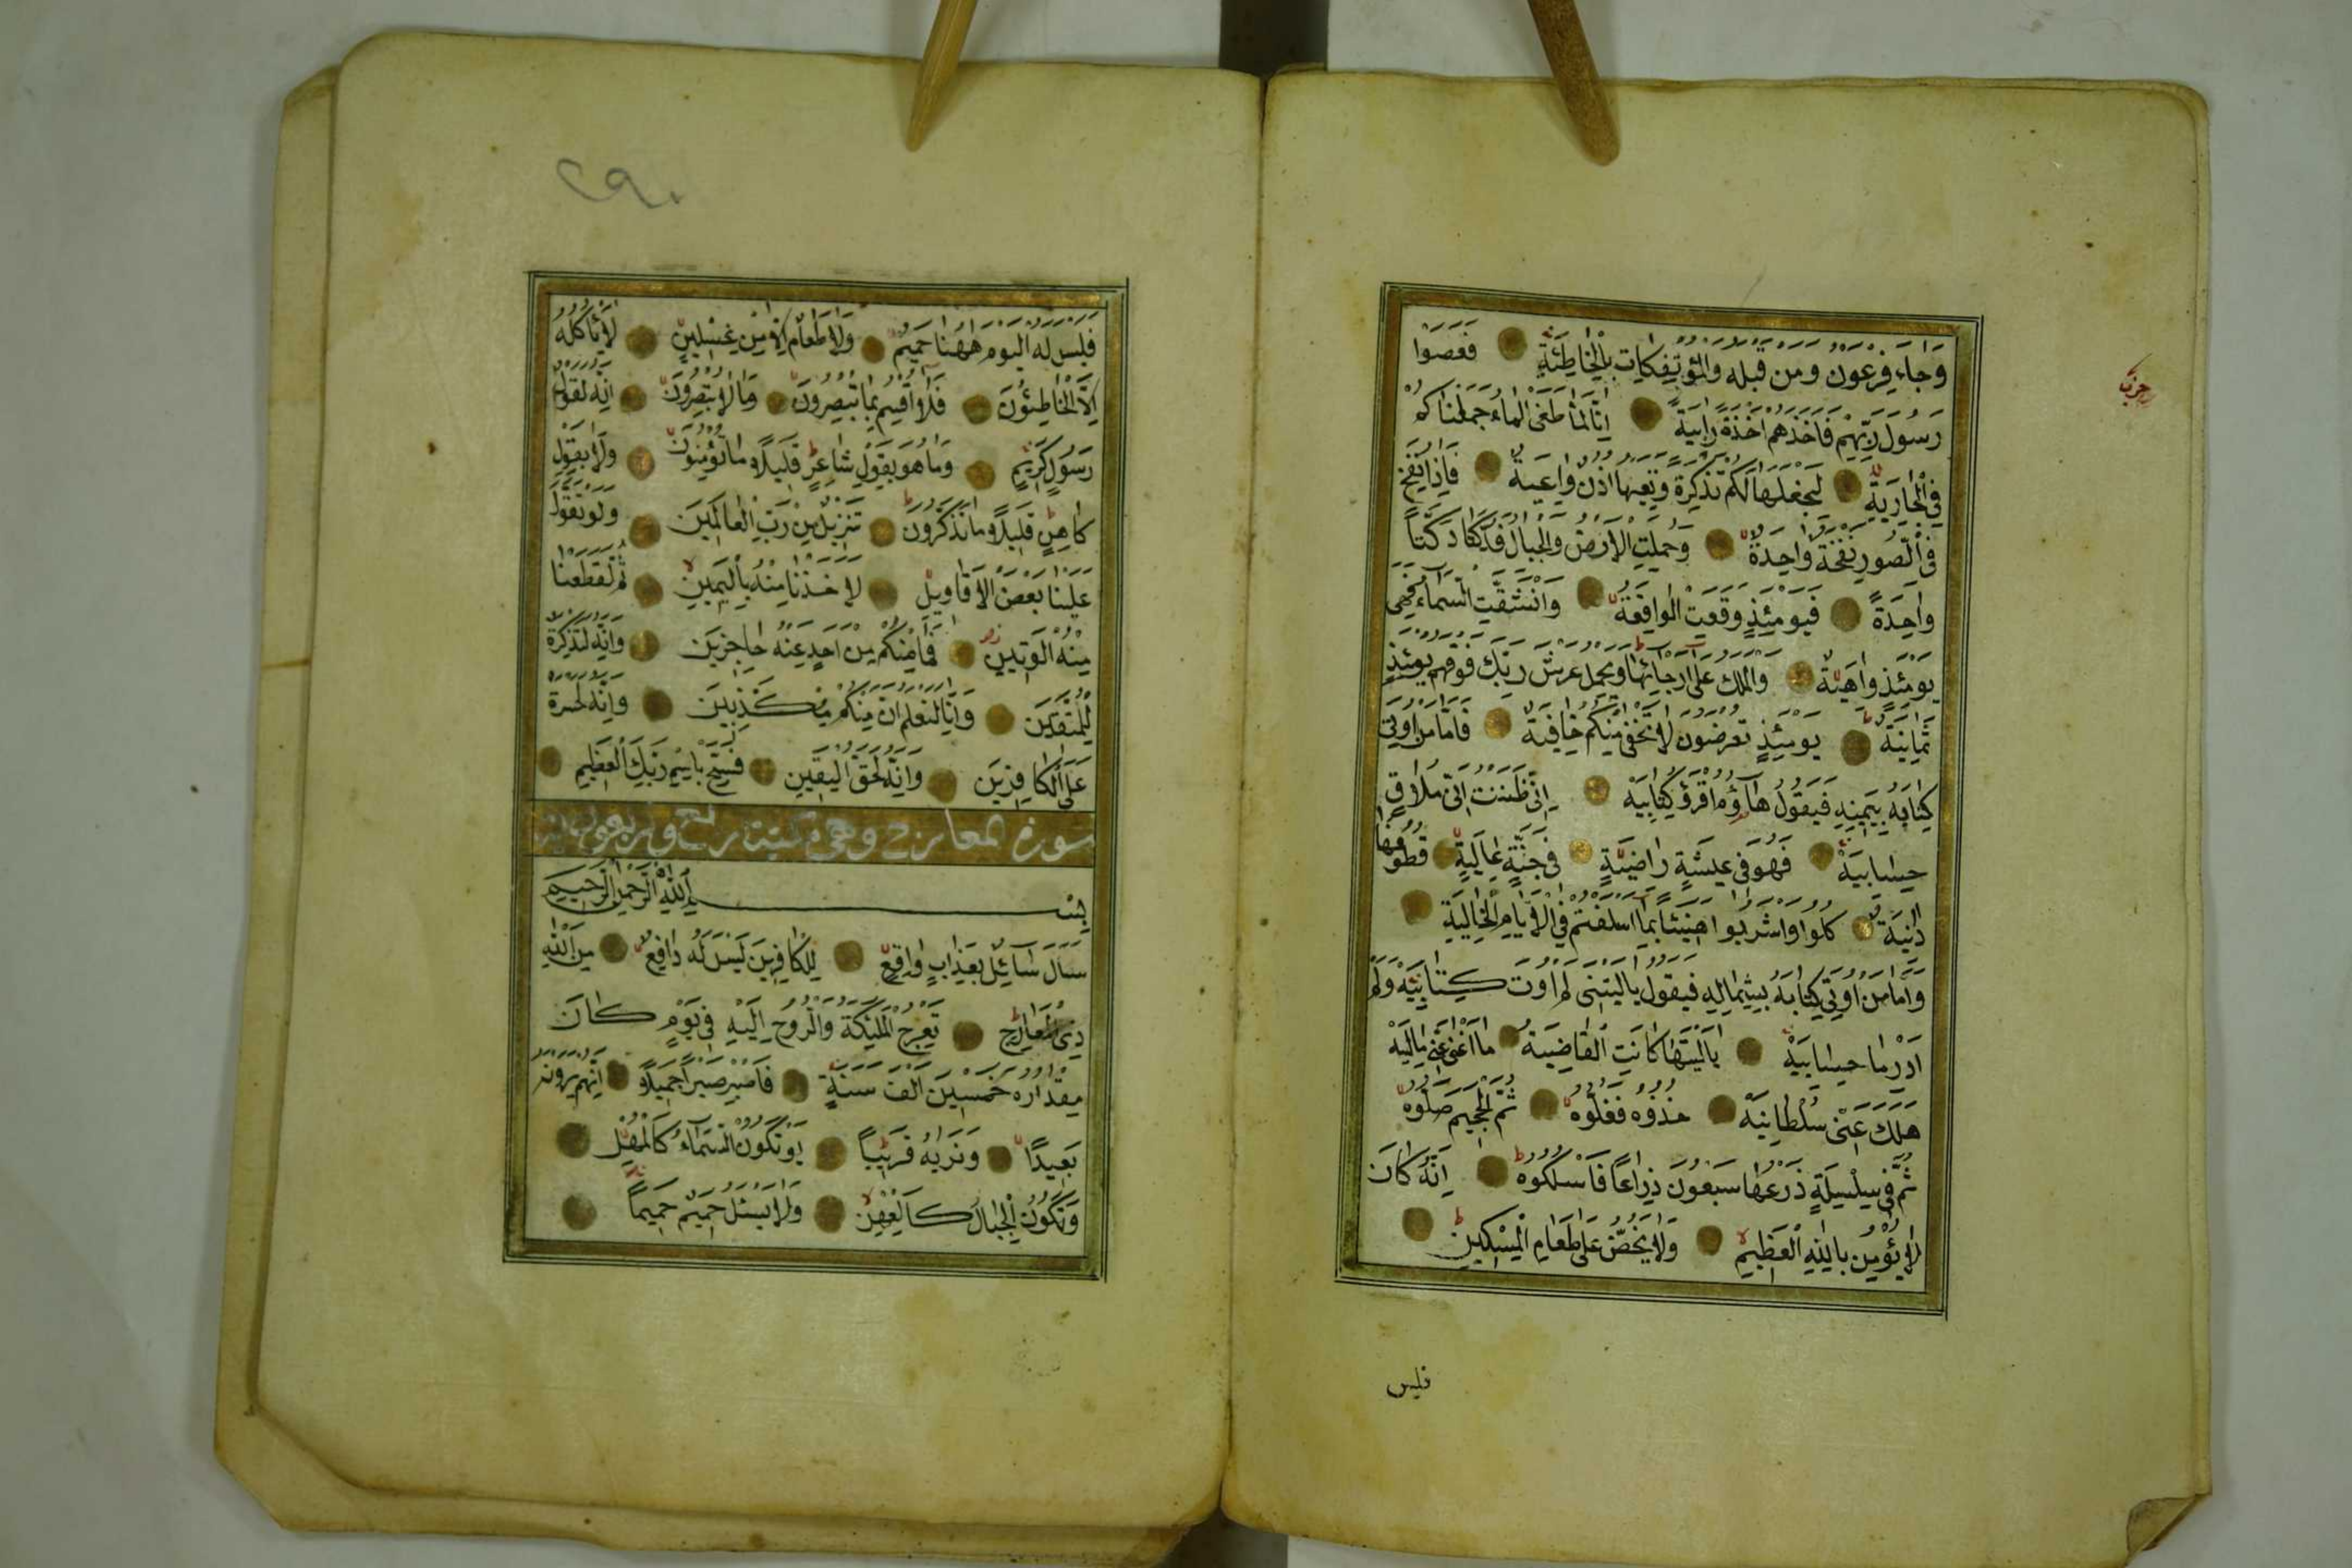 وَجَاءَ فِرْعَوْنُ وَمَنْ قَبْلَهُ وَالْمُؤْتَفِكَاتُ بِالْخَاطِئَةِ فَعَصَوْا
رَسُولَ رَبِّهِمْ فَأَخَذَهُمْ أَخْذَةً رَابِيَةً اِنَّا لَمَّا طَغَى الْمَاءُ حَمَلْنَاكُمْ
فِي الْجَارِيَةِ لِنَجْعَلَهَا لَكُمْ تَذْكِرَةً وَتَعِيَهَا اُذُنٌ وَاعِيَةٌ فَاِذَا نُفِخَ
فِي الصُّورِ نَفْخَةٌ وَاحِدَةٌ وَحُمِلَتِ الْاَرْضُ وَالْجِبَالُ فَدُكَّتَا دَكَّةً
وَاحِدَةً فَيَوْمَئِذٍ وَقَعَتِ الْوَاقِعَةُ وَانْشَقَّتِ السَّمَاءُ فَهِيَ
يَوْمَئِذٍ وَاهِيَةٌ وَالْمَلَكُ عَلَى اَرْجَائِهَا وَيَحْمِلُ عَرْشَ رَبِّكَ فَوْقَهُمْ يَوْمَئِذٍ
ثَمَانِيَةٌ يَوْمَئِذٍ تُعْرَضُونَ لَا تَخْفَى مِنْكُمْ خَافِيَةٌ فَاَمَّا مَنْ اُوتِيَ
كِتَابَهُ بِيَمِينِهِ فَيَقُولُ هَاؤُمُ اقْرَؤُا كِتَابِيَهْ اِنِّي ظَنَنْتُ اَنِّي مُلَاقٍ
حِسَابِيَهْ فَهُوَ فِي عِيشَةٍ رَاضِيَةٍ فِي جَنَّةٍ عَالِيَةٍ قُطُوفُهَا
دَانِيَةٌ كُلُوا وَاشْرَبُوا هَنِيئًا بِمَا اَسْلَفْتُمْ فِي الْاَيَّامِ الْخَالِيَةِ
وَاَمَّا مَنْ اُوتِيَ كِتَابَهُ بِشِمَالِهِ فَيَقُولُ يَا لَيْتَنِي لَمْ اُوتَ كِتَابِيَهْ وَلَمْ
اَدْرِ مَا حِسَابِيَهْ يَا لَيْتَهَا كَانَتِ الْقَاضِيَةَ مَا اَغْنَى عَنِّي مَالِيَهْ
هَلَكَ عَنِّي سُلْطَانِيَهْ خُذُوهُ فَغُلُّوهُ ثُمَّ الْجَحِيمَ صَلُّوهُ
ثُمَّ فِي سِلْسِلَةٍ ذَرْعُهَا سَبْعُونَ ذِرَاعًا فَاسْلُكُوهُ اِنَّهُ كَانَ
لَا يُؤْمِنُ بِاللهِ الْعَظِيمِ وَلَا يَحُضُّ عَلَى طَعَامِ الْمِسْكِينِ
فليس
٢٩٠
فَلَيْسَ لَهُ الْيَوْمَ هٰهُنَا حَمِيمٌ وَلَا طَعَامٌ اِلَّا مِنْ غِسْلِينٍ لَا يَأْكُلُهُ
اِلَّا الْخَاطِئُونَ فَلَا اُقْسِمُ بِمَا تُبْصِرُونَ وَمَا لَا تُبْصِرُونَ اِنَّهُ لَقَوْلُ
رَسُولٍ كَرِيمٍ وَمَا هُوَ بِقَوْلِ شَاعِرٍ قَلِيلًا مَا تُؤْمِنُونَ وَلَا بِقَوْلِ
كَاهِنٍ قَلِيلًا مَا تَذَكَّرُونَ تَنْزِيلٌ مِنْ رَبِّ الْعَالَمِينَ وَلَوْ تَقَوَّلَ
عَلَيْنَا بَعْضَ الْاَقَاوِيلِ لَاَخَذْنَا مِنْهُ بِالْيَمِينِ ثُمَّ لَقَطَعْنَا
مِنْهُ الْوَتِينَ فَمَا مِنْكُمْ مِنْ اَحَدٍ عَنْهُ حَاجِزِينَ وَاِنَّهُ لَتَذْكِرَةٌ
لِلْمُتَّقِينَ وَاِنَّا لَنَعْلَمُ اَنَّ مِنْكُمْ مُكَذِّبِينَ وَاِنَّهُ لَحَسْرَةٌ
عَلَى الْكَافِرِينَ وَاِنَّهُ لَحَقُّ الْيَقِينِ فَسَبِّحْ بِاسْمِ رَبِّكَ الْعَظِيمِ
سورة المعارج وهي مكية اربع واربعون اية
بِسْمِ اللهِ الرَّحْمٰنِ الرَّحِيمِ
سَأَلَ سَائِلٌ بِعَذَابٍ وَاقِعٍ لِلْكَافِرِينَ لَيْسَ لَهُ دَافِعٌ مِنَ اللهِ
ذِي الْمَعَارِجِ تَعْرُجُ الْمَلٰئِكَةُ وَالرُّوحُ اِلَيْهِ فِي يَوْمٍ كَانَ
مِقْدَارُهُ خَمْسِينَ اَلْفَ سَنَةٍ فَاصْبِرْ صَبْرًا جَمِيلًا اِنَّهُمْ يَرَوْنَهُ
بَعِيدًا وَنَرَيهُ قَرِيبًا يَوْمَ تَكُونُ السَّمَاءُ كَالْمُهْلِ
وَتَكُونُ الْجِبَالُ كَالْعِهْنِ وَلَا يَسْئَلُ حَمِيمٌ حَمِيمًا